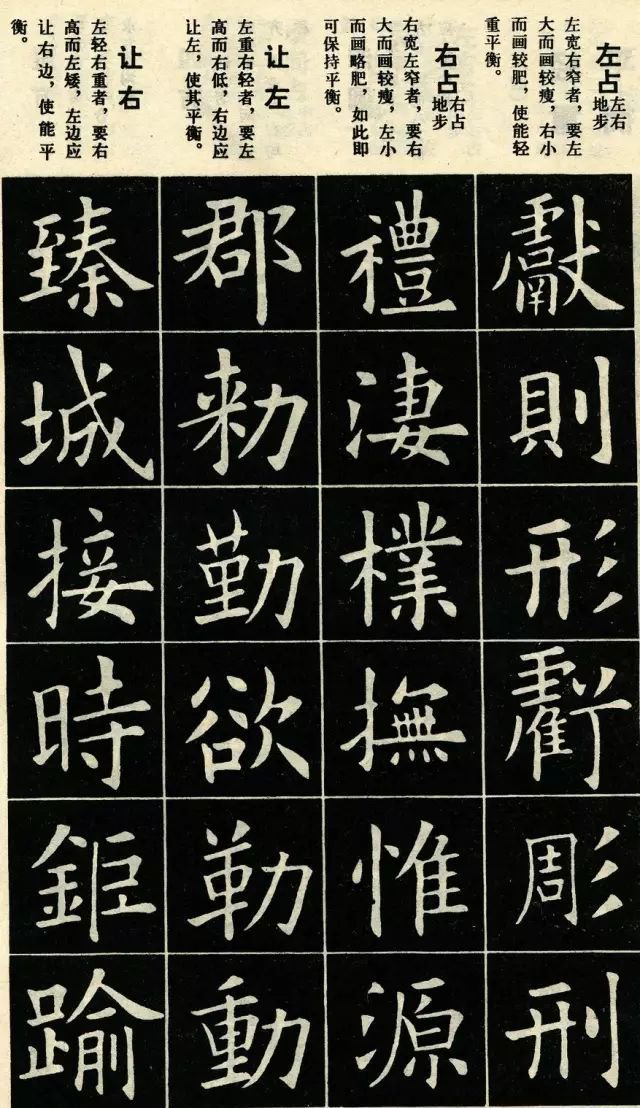 左占
左右
地步
左宽右窄者，要左
大而画较瘦，右小
而画较肥，使能轻
重平衡。
獻則形虧彫刑
右占
右占
地步
右宽左窄者，要右
大而画较瘦，左小
而画略肥，如此即
可保持平衡。
禮淒樸撫惟源
让左
左重右轻者，要左
高而右低，右边应
让左，使其平衡。
郡勑勤欲勒動
让右
左轻右重者，要右
高而左矮，左边应
让右边，使能平
衡。
臻城接時鉅踰